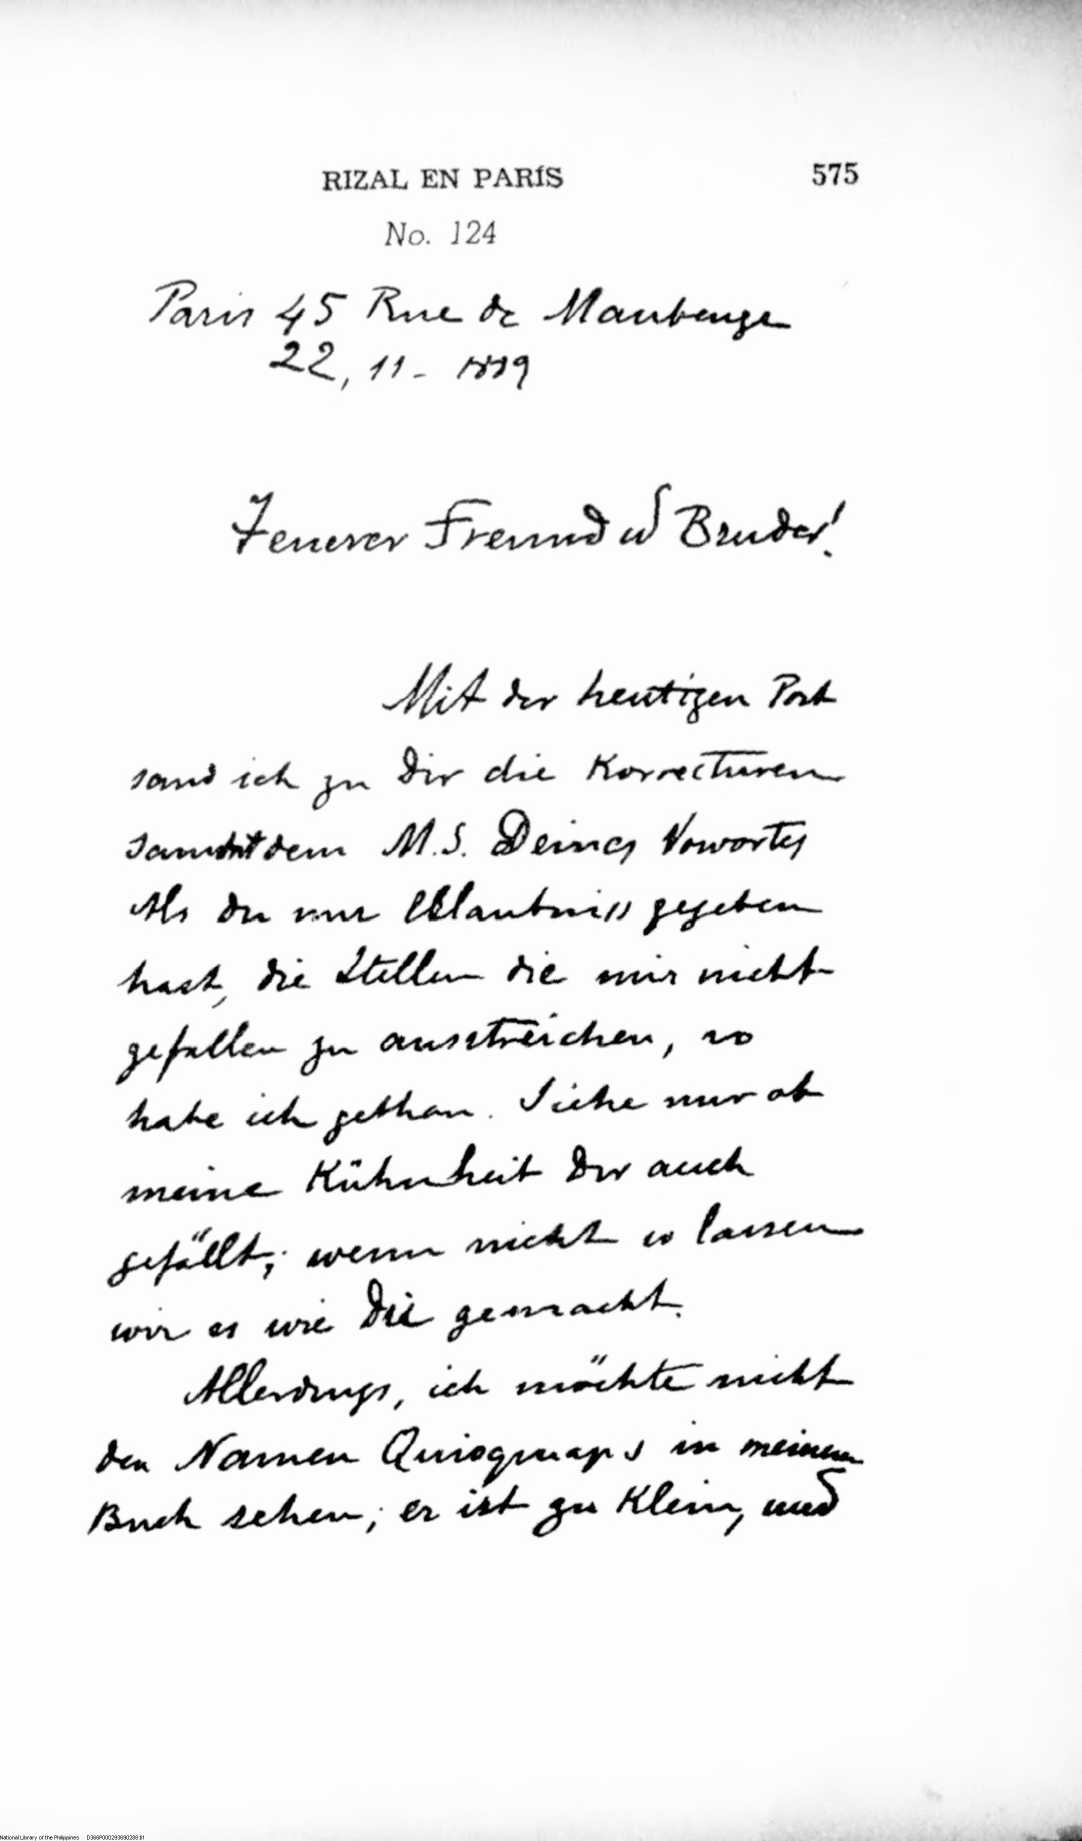 RIZAL EN PARÍS 575
No. 124
Paris 45 Rue de Maubeuge
22, 11 - 1889
Teuerer Freund u Bruder!
Mit der heutigen Post
sand ich zu Dir die Korrecturen
sammt dem M.S. Deines Vowortes
Als du mir Erlaubniss gegeben
hast, die Stellen die mir nicht
gefallen zu ausstreichen, so
habe ich gethan. Siehe nur ob
meine Kühnheit Dir auch
gefällt; wenn nicht so lassen
wir es wie Du gemacht.
Allerdings, ich möchte nicht
den Namen Quioquiaps in meinem
Buch sehen; er ist zu Klein, und
National Library of the Philippines